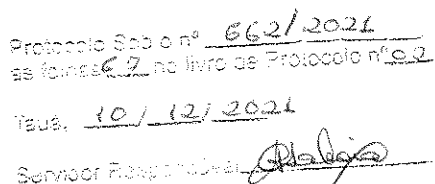 Protocolo Sob o nº 662/2021
as folhas 67 no livro de Protocolo nº 02
Tauá, 10/12/2021
Servidor Responsável